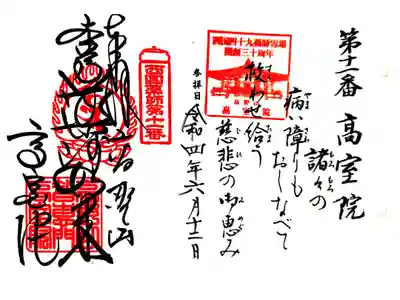 第十一番 高室院
諸々の
病い障りも
おしなべて
救わせ給う
慈悲の御恵み
西国四十九薬師霊場
開創三十周年
高室院
参拝日
令和四年六月十二日
西国薬師第十一番
高野山
高室院